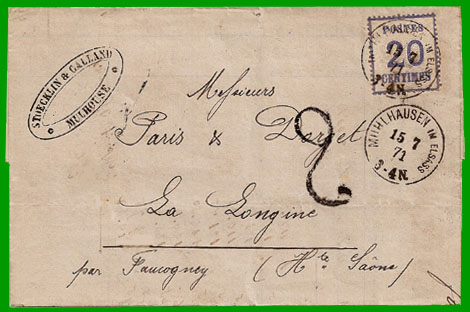 STOECKLIN & GALLAND
MULHOUSE
POSTES
20
CENTIMES
MÜLHAUSEN IM ELSASS
15 7
71
3-4N.
2
Messieurs
Paris & Dorget
La Longine
par Faucogney (Hte Saône)